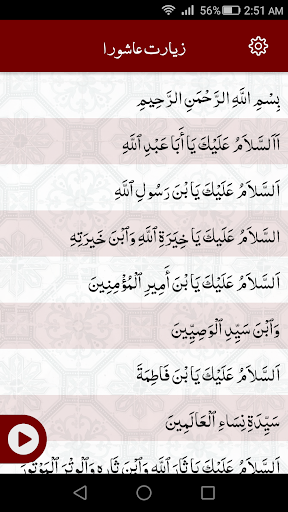 56% 2:51 AM
زیارت عاشورا
بِسْمِ اللَّهِ الرَّحْمَنِ الرَّحِيمِ
اَالسَّلاَمُ عَلَيْكَ يَا أَبَا عَبْدِ ٱللَّهِ
اَلسَّلاَمُ عَلَيْكَ يَا بْنَ رَسُولِ ٱللَّهِ
السَّلاَمُ عَلَيْكَ يَا خِيَرَةِ ٱللَّهِ وَٱبْنَ خَيرَتِهِ
اَلسَّلاَمُ عَلَيْكَ يَا بْنَ أَمِيرِ ٱلْمُؤْمِنِينَ
وَٱبْنَ سَيِّدِ ٱلْوَصِيِّينَ
اَلسَّلاَمُ عَلَيْكَ يَا بْنَ فَاطِمَةَ
سَيِّدَةِ نِسَاءِ ٱلْعَالَمِينَ
اَلسَّلاَمُ عَلَيْكَ يَا ثَارَ ٱللَّهِ وَٱبْنَ ثَارِهِ وَٱلْوِتْرَ ٱلْمَوْتُورَ